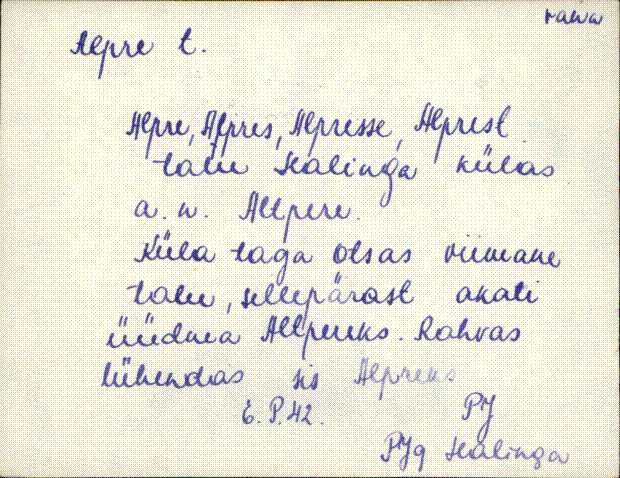 Alpre t.
Alpre, Alpres, Alpresse, Alprest
talu Halinga külas
a. n. Altpere.
Küla taga otsas viimane
talu, sellepärast akati
üüdma Altpereks. Rahvas
lühendas siis Alpreks
E. P. 42. PJ
PJg Halinga